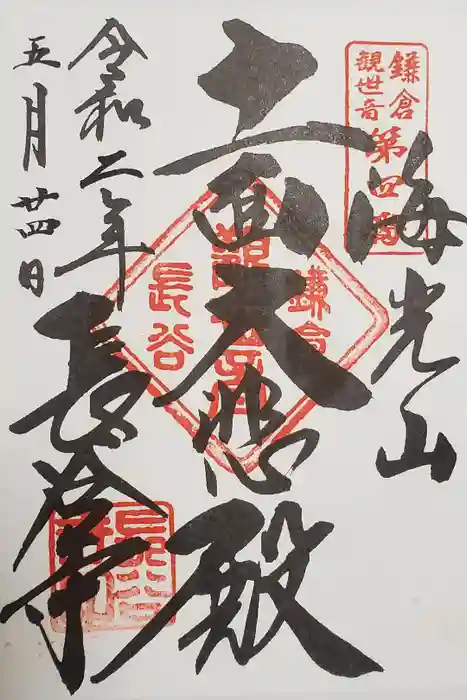 鎌倉
観世音
第四番
海光山
十一面大悲殿
鎌倉
長谷
令和二年
五月廿四日
長谷寺